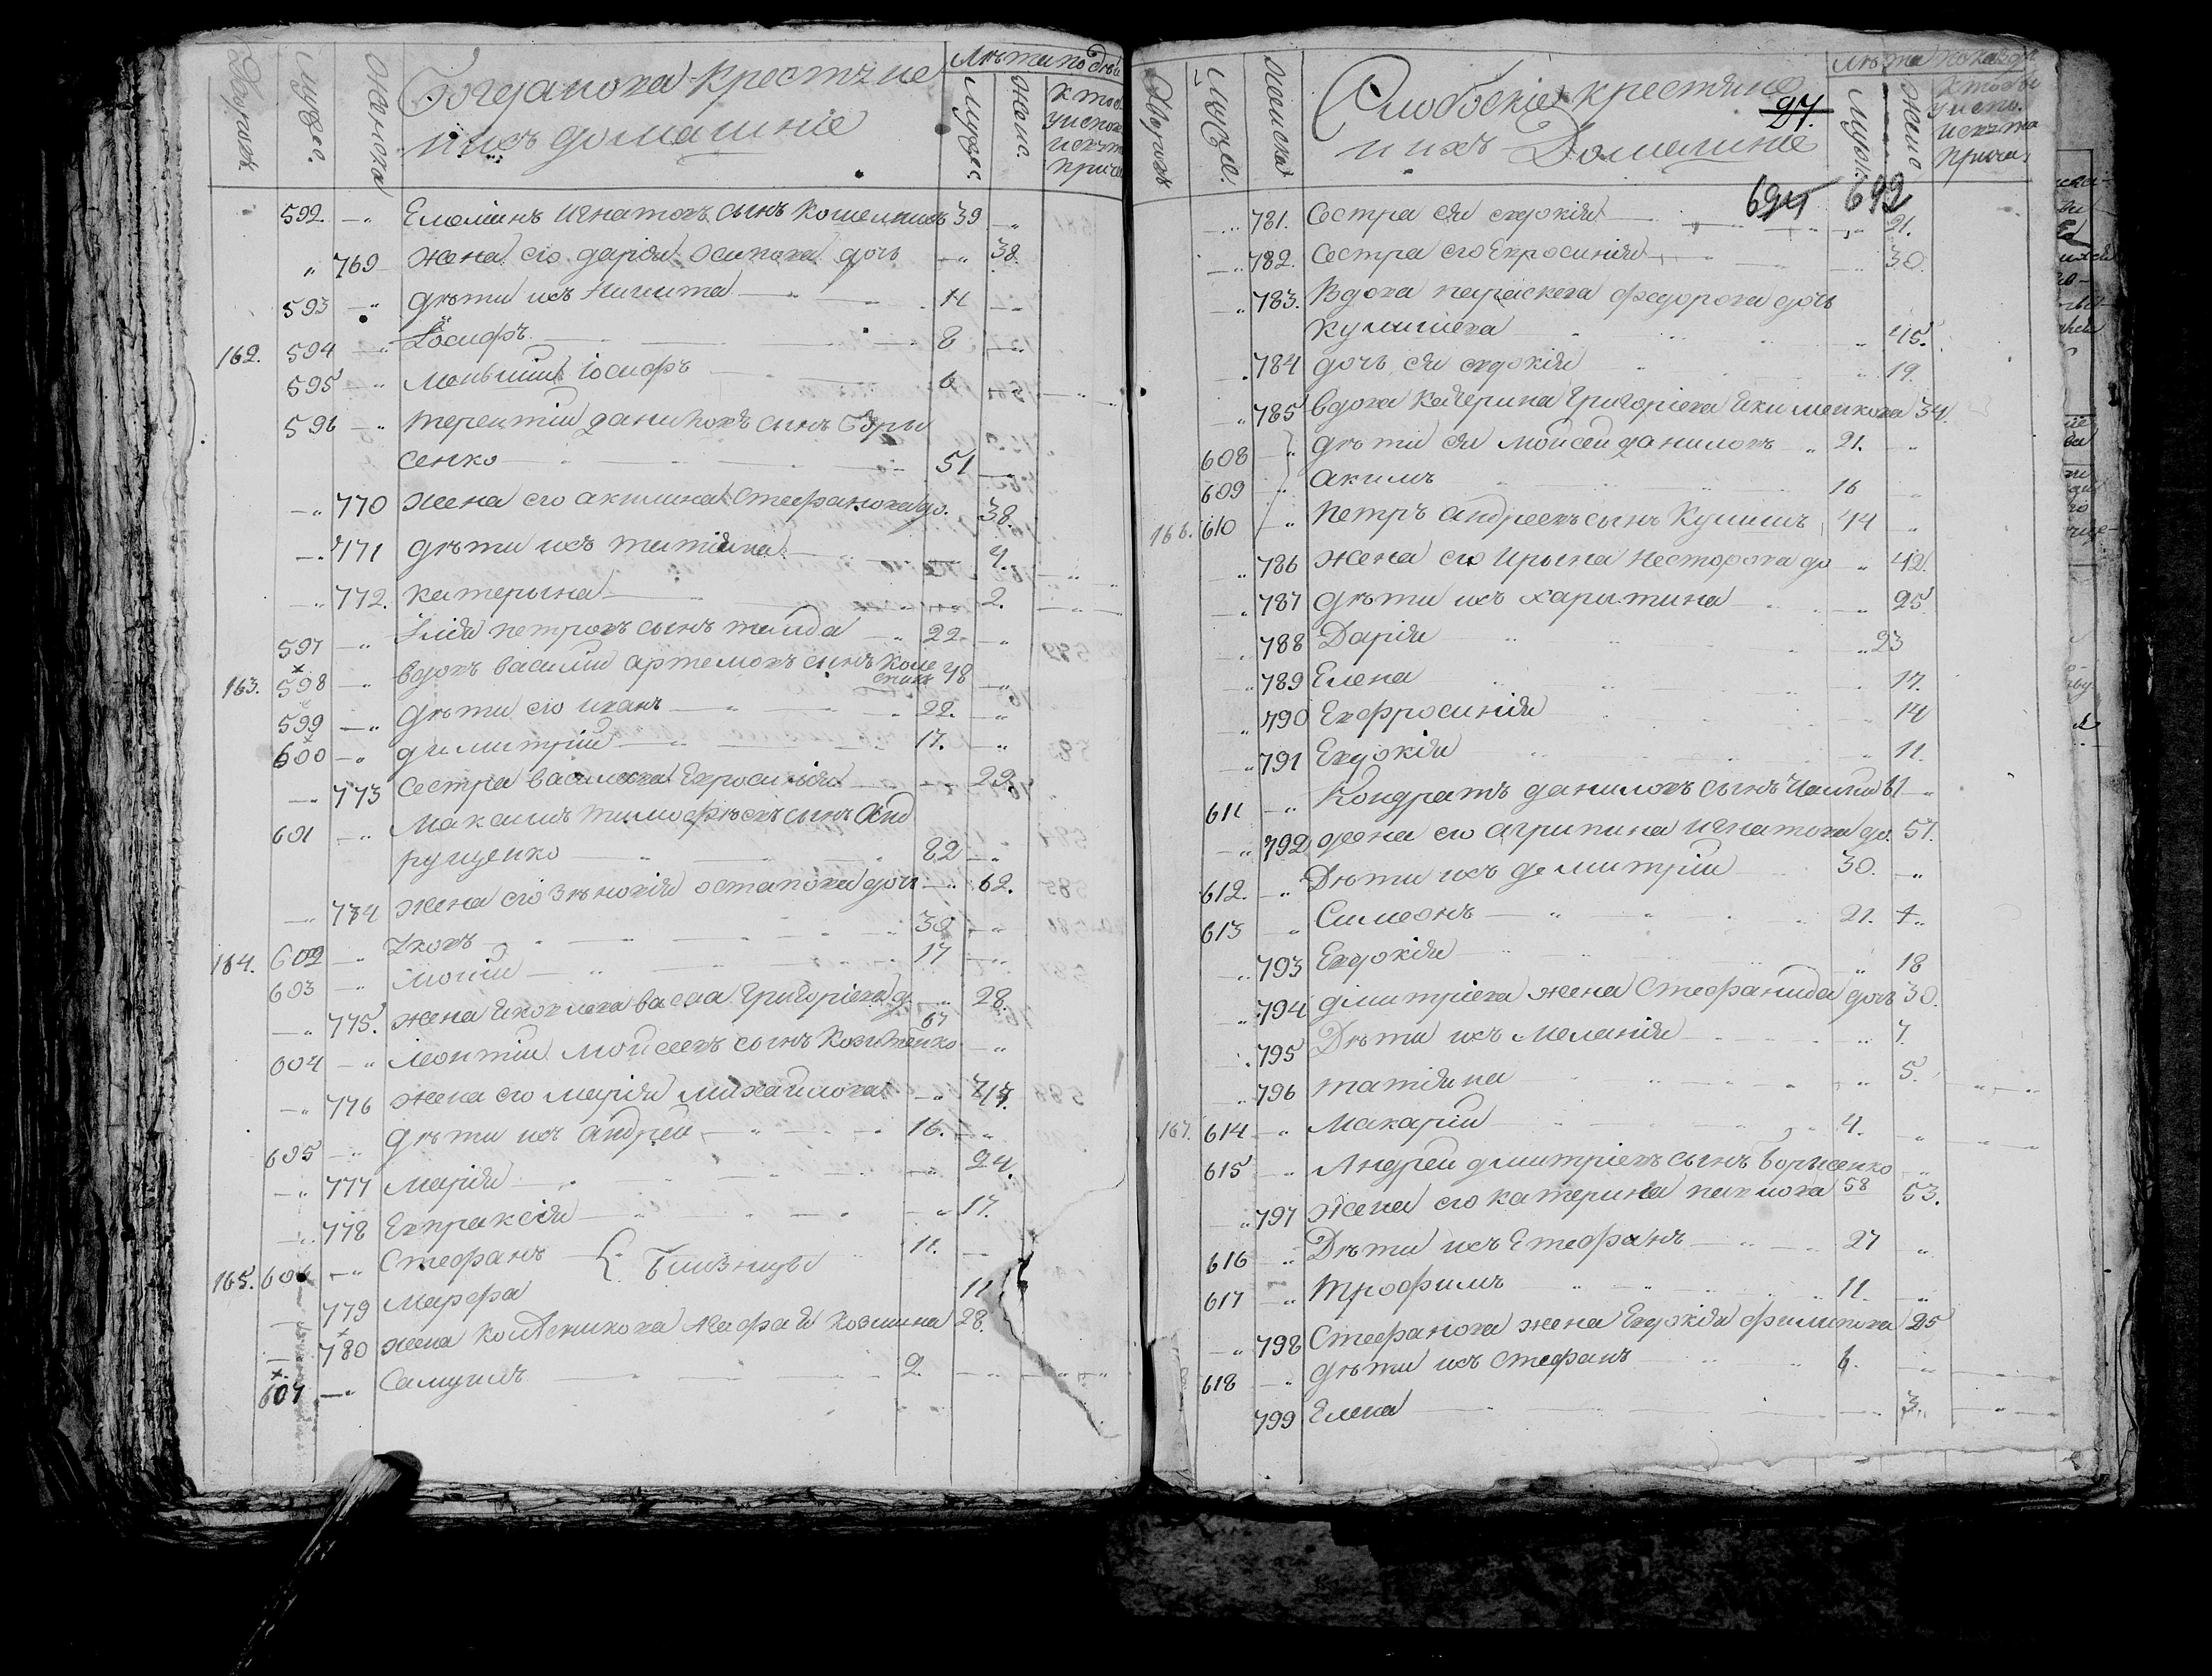 Дворовъ Мужес. Женска Богданова крестяне Мужес. Женс.
ихъ домашніе
592. Емелиянъ Игнатовъ сынъ 39
769 жена его дарія Осипова дочь 38.
593 дѣти ихъ Никита 11
162. 594 Іосифъ 8
595 меньший іосифъ 6
596 терентий данилов сынъ Бэры
сенко 51
770 жена его акилина Стефанова до. 38.
771 дѣти ихъ татіяна 4.
772. катерына 2.
597 Илія петровъ сынъ 22
163. 598 вдовъ василий артемовъ сынъ 48
599 дѣти его иванъ 22.
600 димитрій 17.
773 Сестра василева Евросинія 29.
601 Максимъ тимофѣевъ сынъ Анд
рущенко 82
774 жена его Зѣновія остапова дочь 62.
164. 602 Яковъ 30
603 17
775. жена Яковлева васса Григоріева д. 28.
604 леонтій мойсеевъ сынъ 67
776 жена его марія михайлова
605 дѣти ихъ андрей 16.
777 марія 24.
778 Евпраксія 17.
165. 606 Стефанъ Близнцы 11.
779 Марфа 11
780 жена Агафія Козмина 28.
607 Самуилъ 2.
Дворовъ Мужес. Женска Слобоскіе крестяне Мужс. Женс
27.
и ихъ Домашніе
694 692
781. Сестра ея евдокія 21.
782. Сестра его Евросинія 30.
783. Вдова параскева федорова дочь
45.
784 дочь ея евдокія 19.
785 вдова Катерина Григоріева Якименкова 34.
608 дѣти ея мойсей данилов 21.
609 акимъ 16
166. 610 Петръ андреевъ сынъ Кулишъ 44
786 жена его Ирына несторова до 42.
787 дѣти ихъ харитина 25.
788 Дарія 23
789 Елена 17.
790 Евфросинія 14
791 Евдокія 11.
611 Кондратъ даниловъ сынъ 61
792 жена его агрипина Игнатова до. 57.
612. Дѣти ихъ демитрій 30.
613 Симеонъ 21.
793 Евдокія 18
794 дмитріева жена Стефанида дочь 30.
795 Дѣти ихъ меланія 7.
796 татіяна 5.
167. 614 Макарий 4.
615 Андрей дмитріевъ сынъ борысенко
797 жена его катерина павлова 58 53.
616 Дѣти ихъ Стефанъ 27
617 трофимъ 11.
798 Стефанова жена Евдокія филипова 25
618 дѣти ихъ Стефанъ 6.
799 Елена 3.